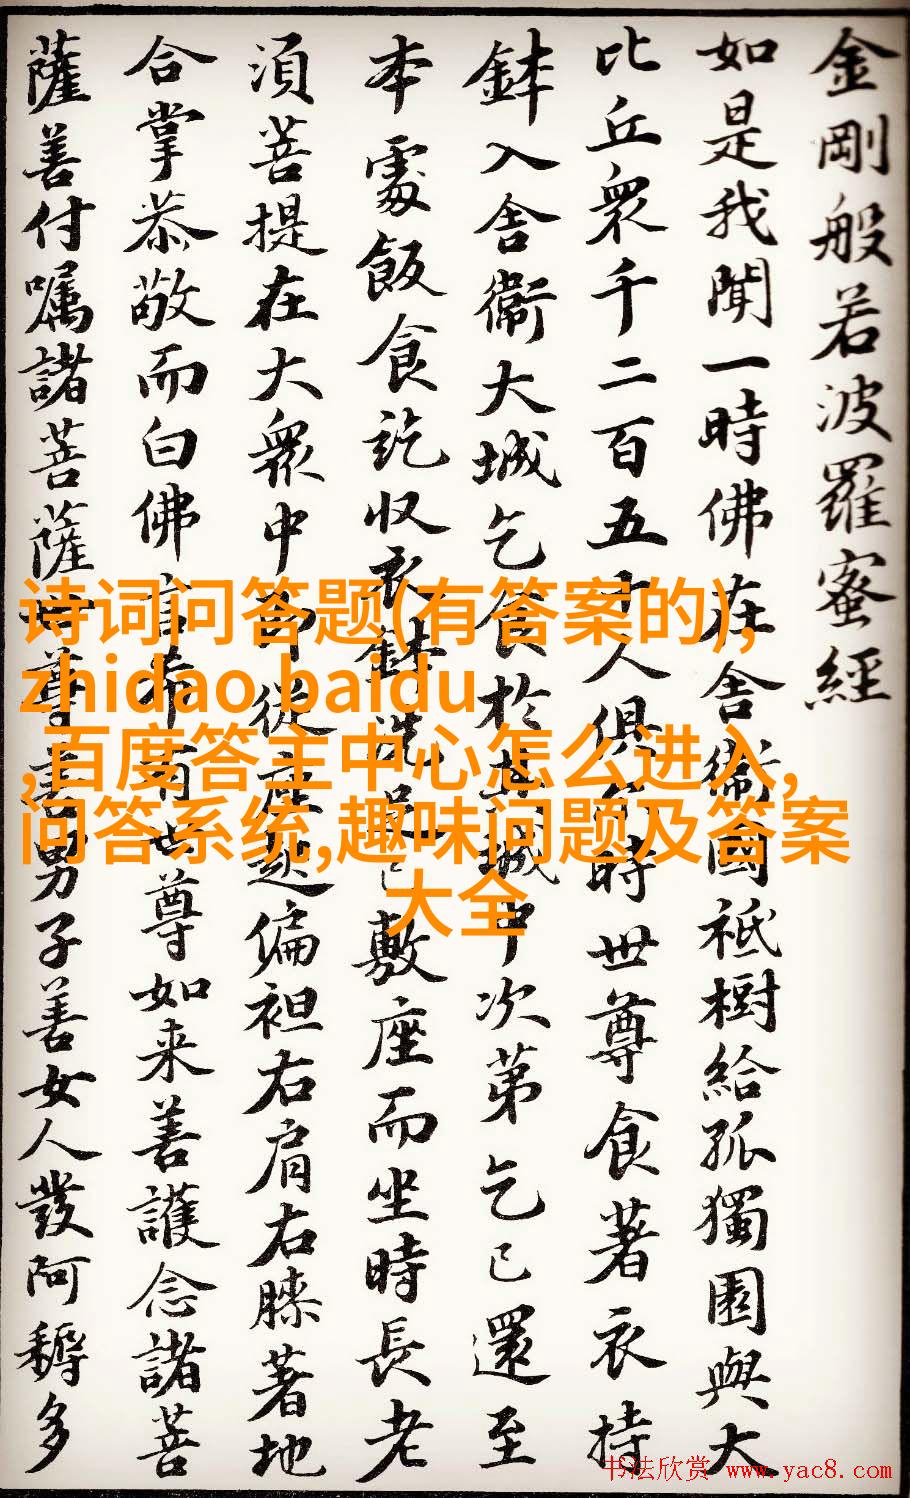 金剛般若波羅蜜經
如是我聞一時佛在舍衞國祇樹給孤獨園與大
比丘衆千二百五十人俱尒時世尊食著衣持
鉢入舍衞大城乞食於其城中次第乞已還至
本處飯食訖收衣鉢洗足已敷座而坐時長老
須菩提在大衆中即從座起偏袒右肩右膝著地
合掌恭敬而白佛言希有世尊如来善護念諸菩
薩善付囑諸菩薩世尊善男子善女人發阿耨多
诗词问答题(有答案的),
zhidao baidu
,百度答主中心怎么进入,
问答系统,趣味问题及答案
大全
书法欣赏 www.yac8.com